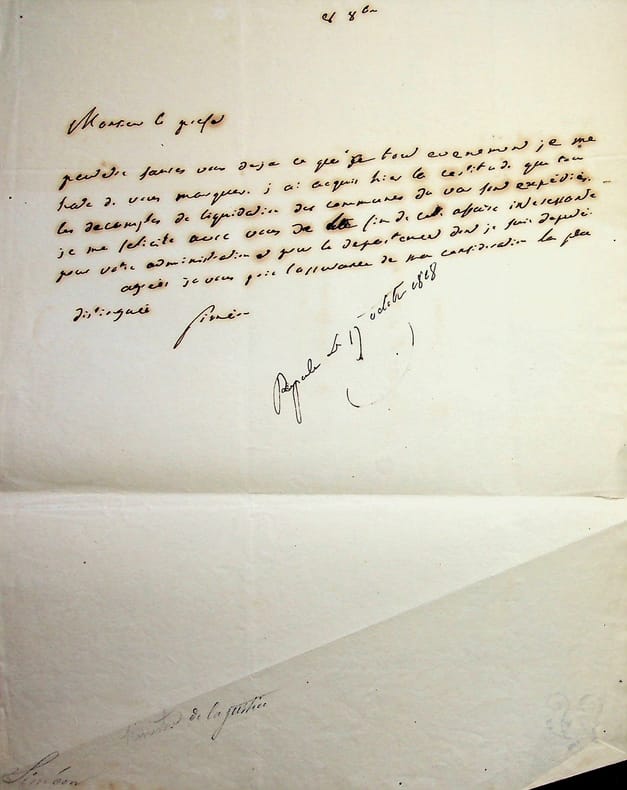 8bre
Monsieur le prefet
peutetre savez vous deja ce que tout evenement je me
hate de vous marquer. j'ai acquis hier la certitude que tous
les decomptes de liquidation des communes du var sont expédiés.
je me felicite avec vous de la fin de cette affaire interessante
pour votre administration et pour le departement dont je suis deputé.
agréez je vous prie l'assurance de ma consideration la plus
distinguée
Siméon
Rép. le 17 octobre 1818
de la justice
Siméon